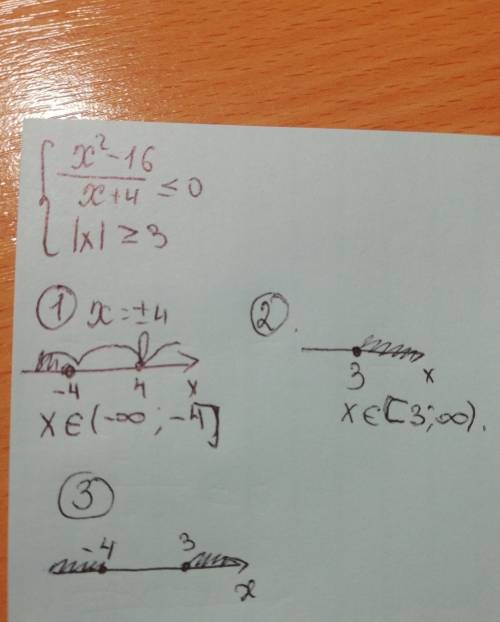 { x² - 16 / x + 4 ≤ 0
|x| ≥ 3
① x = ±4
-4 4 x
x ∈ (-∞; -4]
②.
3 x
x ∈ [3; ∞).
③
-4 3 x